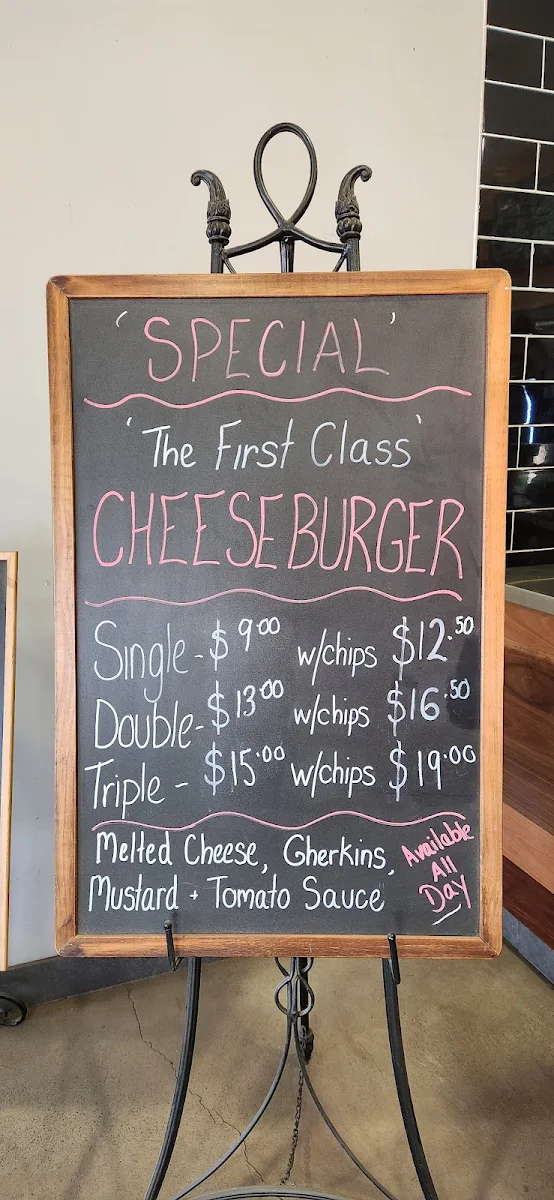 'SPECIAL'
'The First Class'
CHEESEBURGER
Single - $9.00 w/chips $12.50
Double - $13.00 w/chips $16.50
Triple - $15.00 w/chips $19.00
Melted Cheese, Gherkins,
Mustard + Tomato Sauce
Available
All
Day